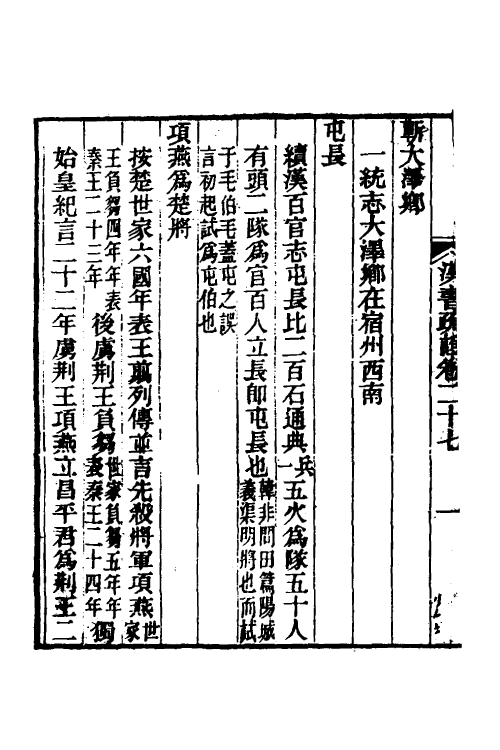 漢書疏證卷二十七
一
蘄大澤鄉
一統志大澤鄉在宿州西南
屯長
續漢百官志屯長比二百石通典兵一五火爲隊五十人
有頭二隊爲官百人立長卽屯長也韓非問田篇陽城義渠明將也而試
于毛伯毛蓋屯之誤言初起試爲屯伯也
項燕爲楚將
按楚世家六國年表王翦列傳並言先殺將軍項燕世家
王負芻四年年表秦王二十三年後虜荆王負芻世家負芻五年年表秦王二十四年獨
始皇紀言二十二年虜荆王項燕立昌平君爲荆王二